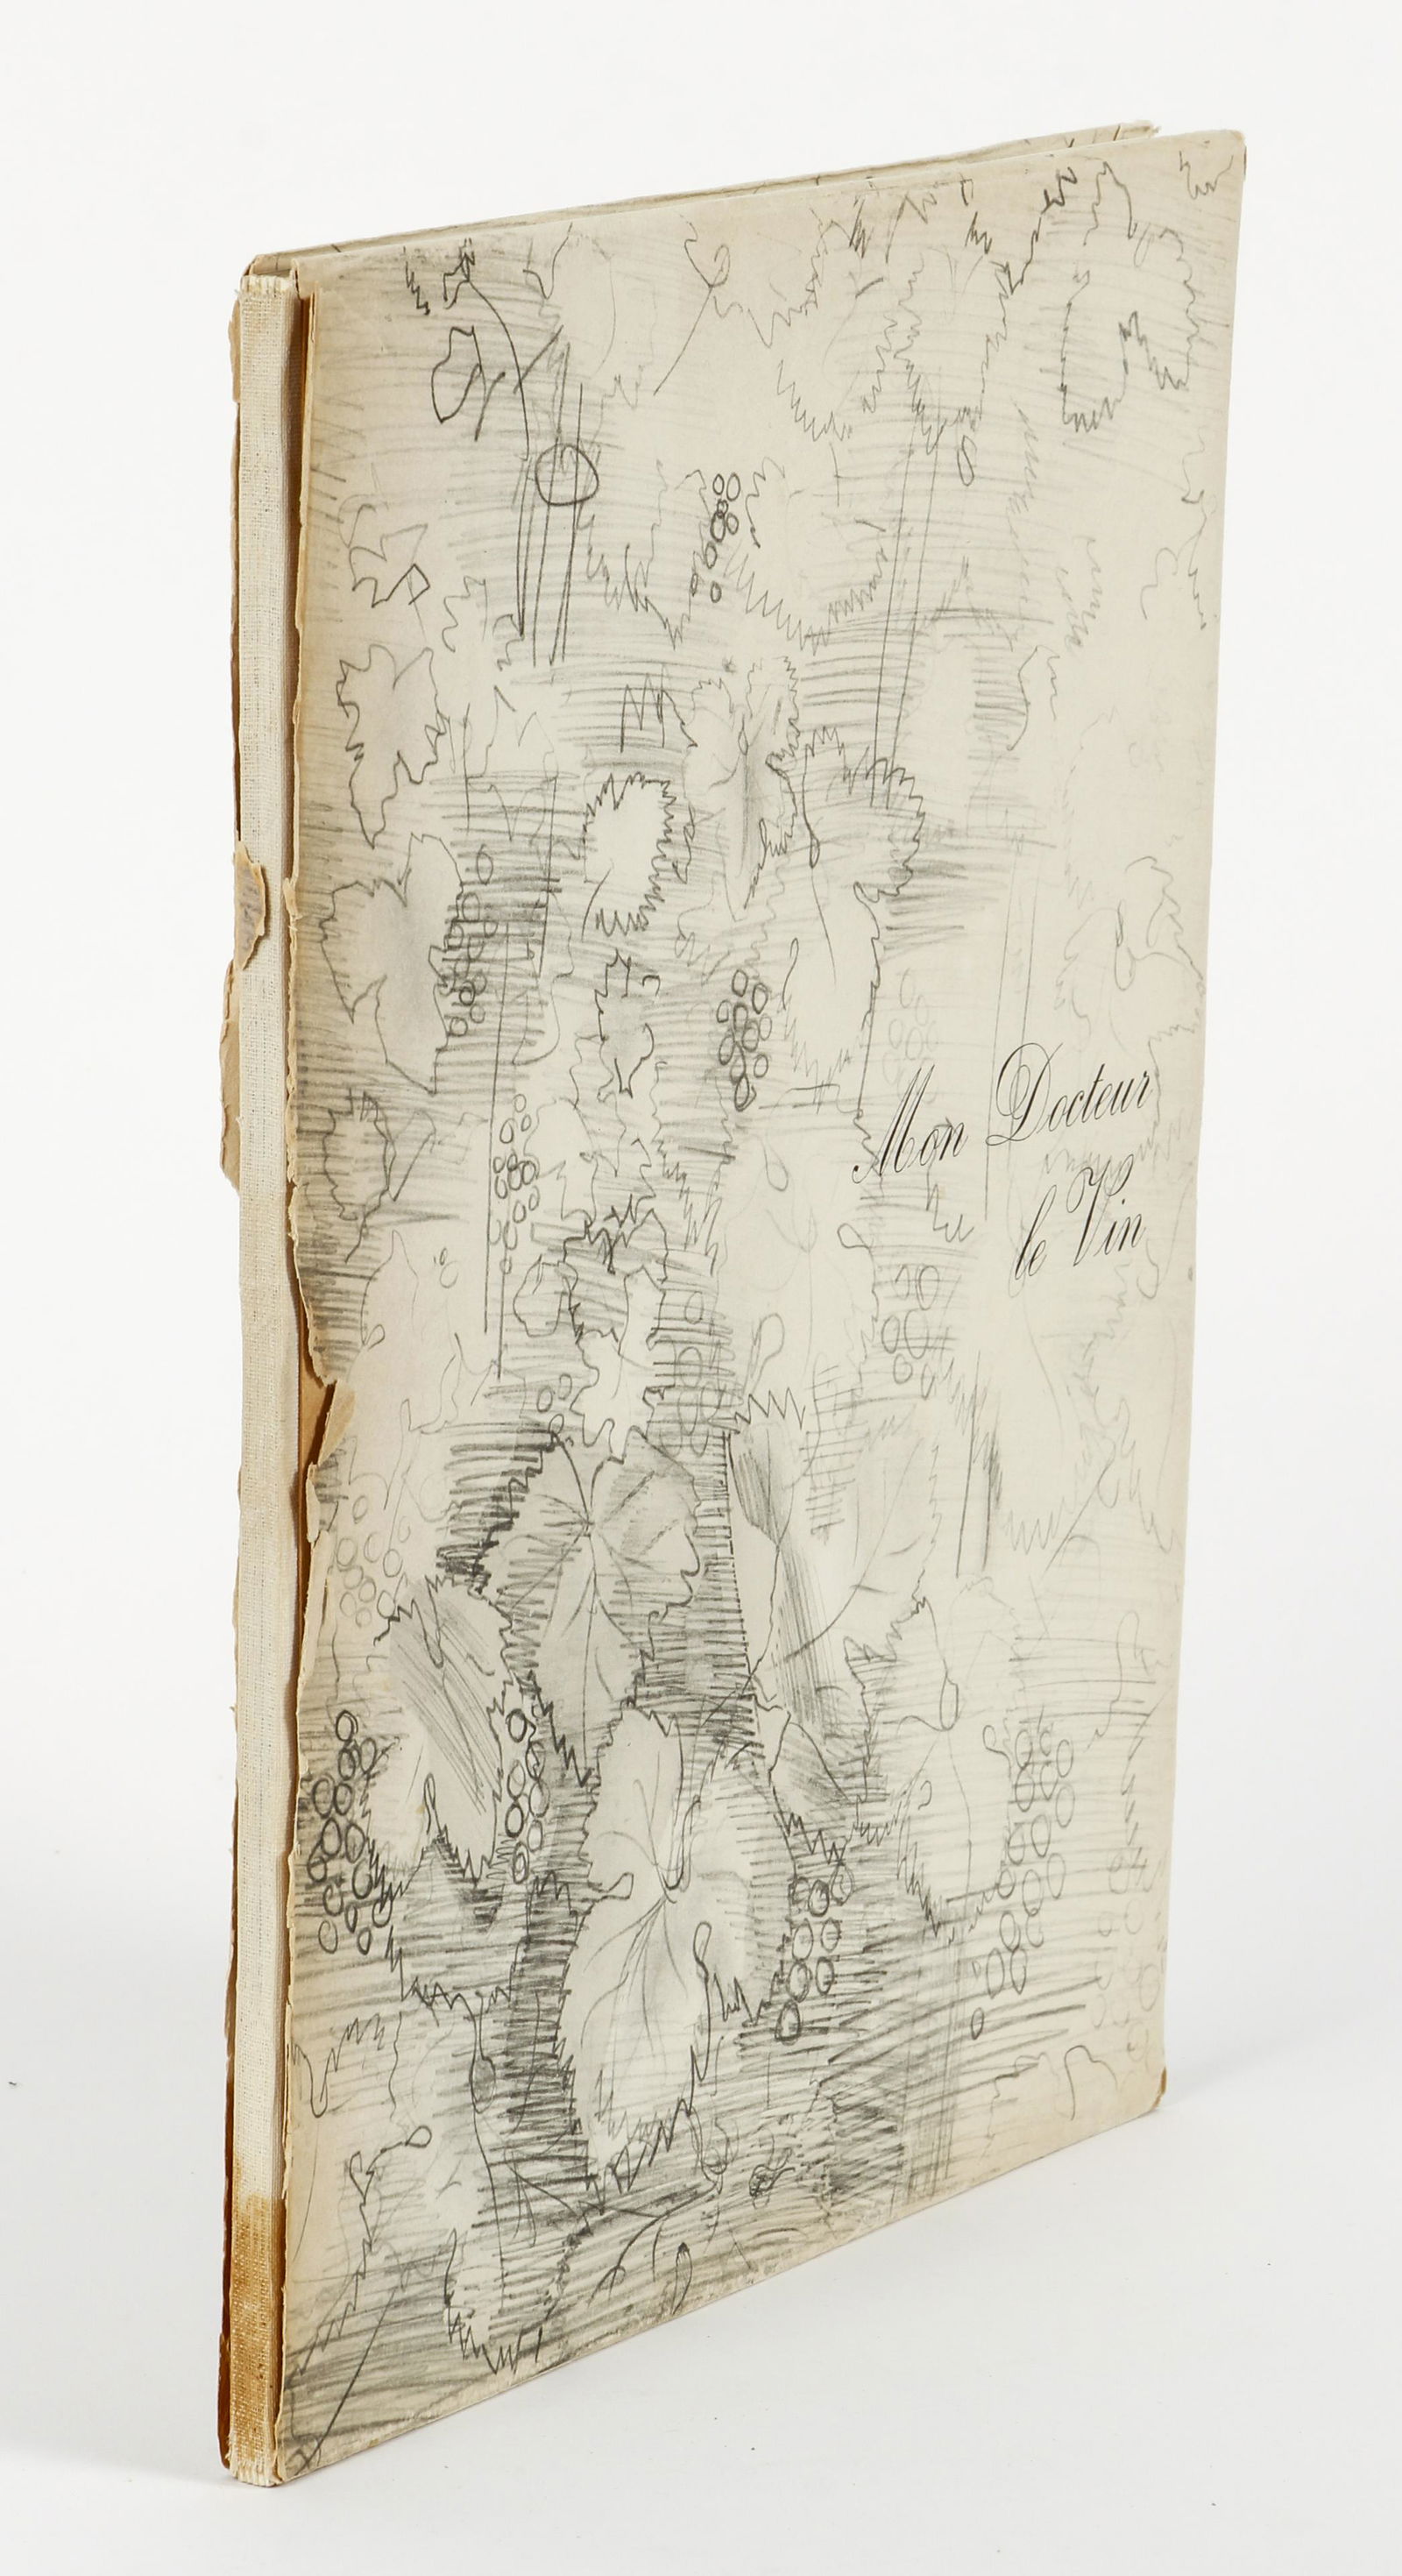 Mon Docteur
le Vin